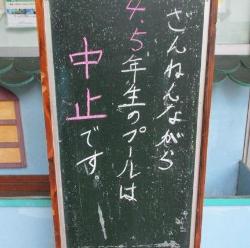 ざんねんながら
4.5年生のプールは
中止です。